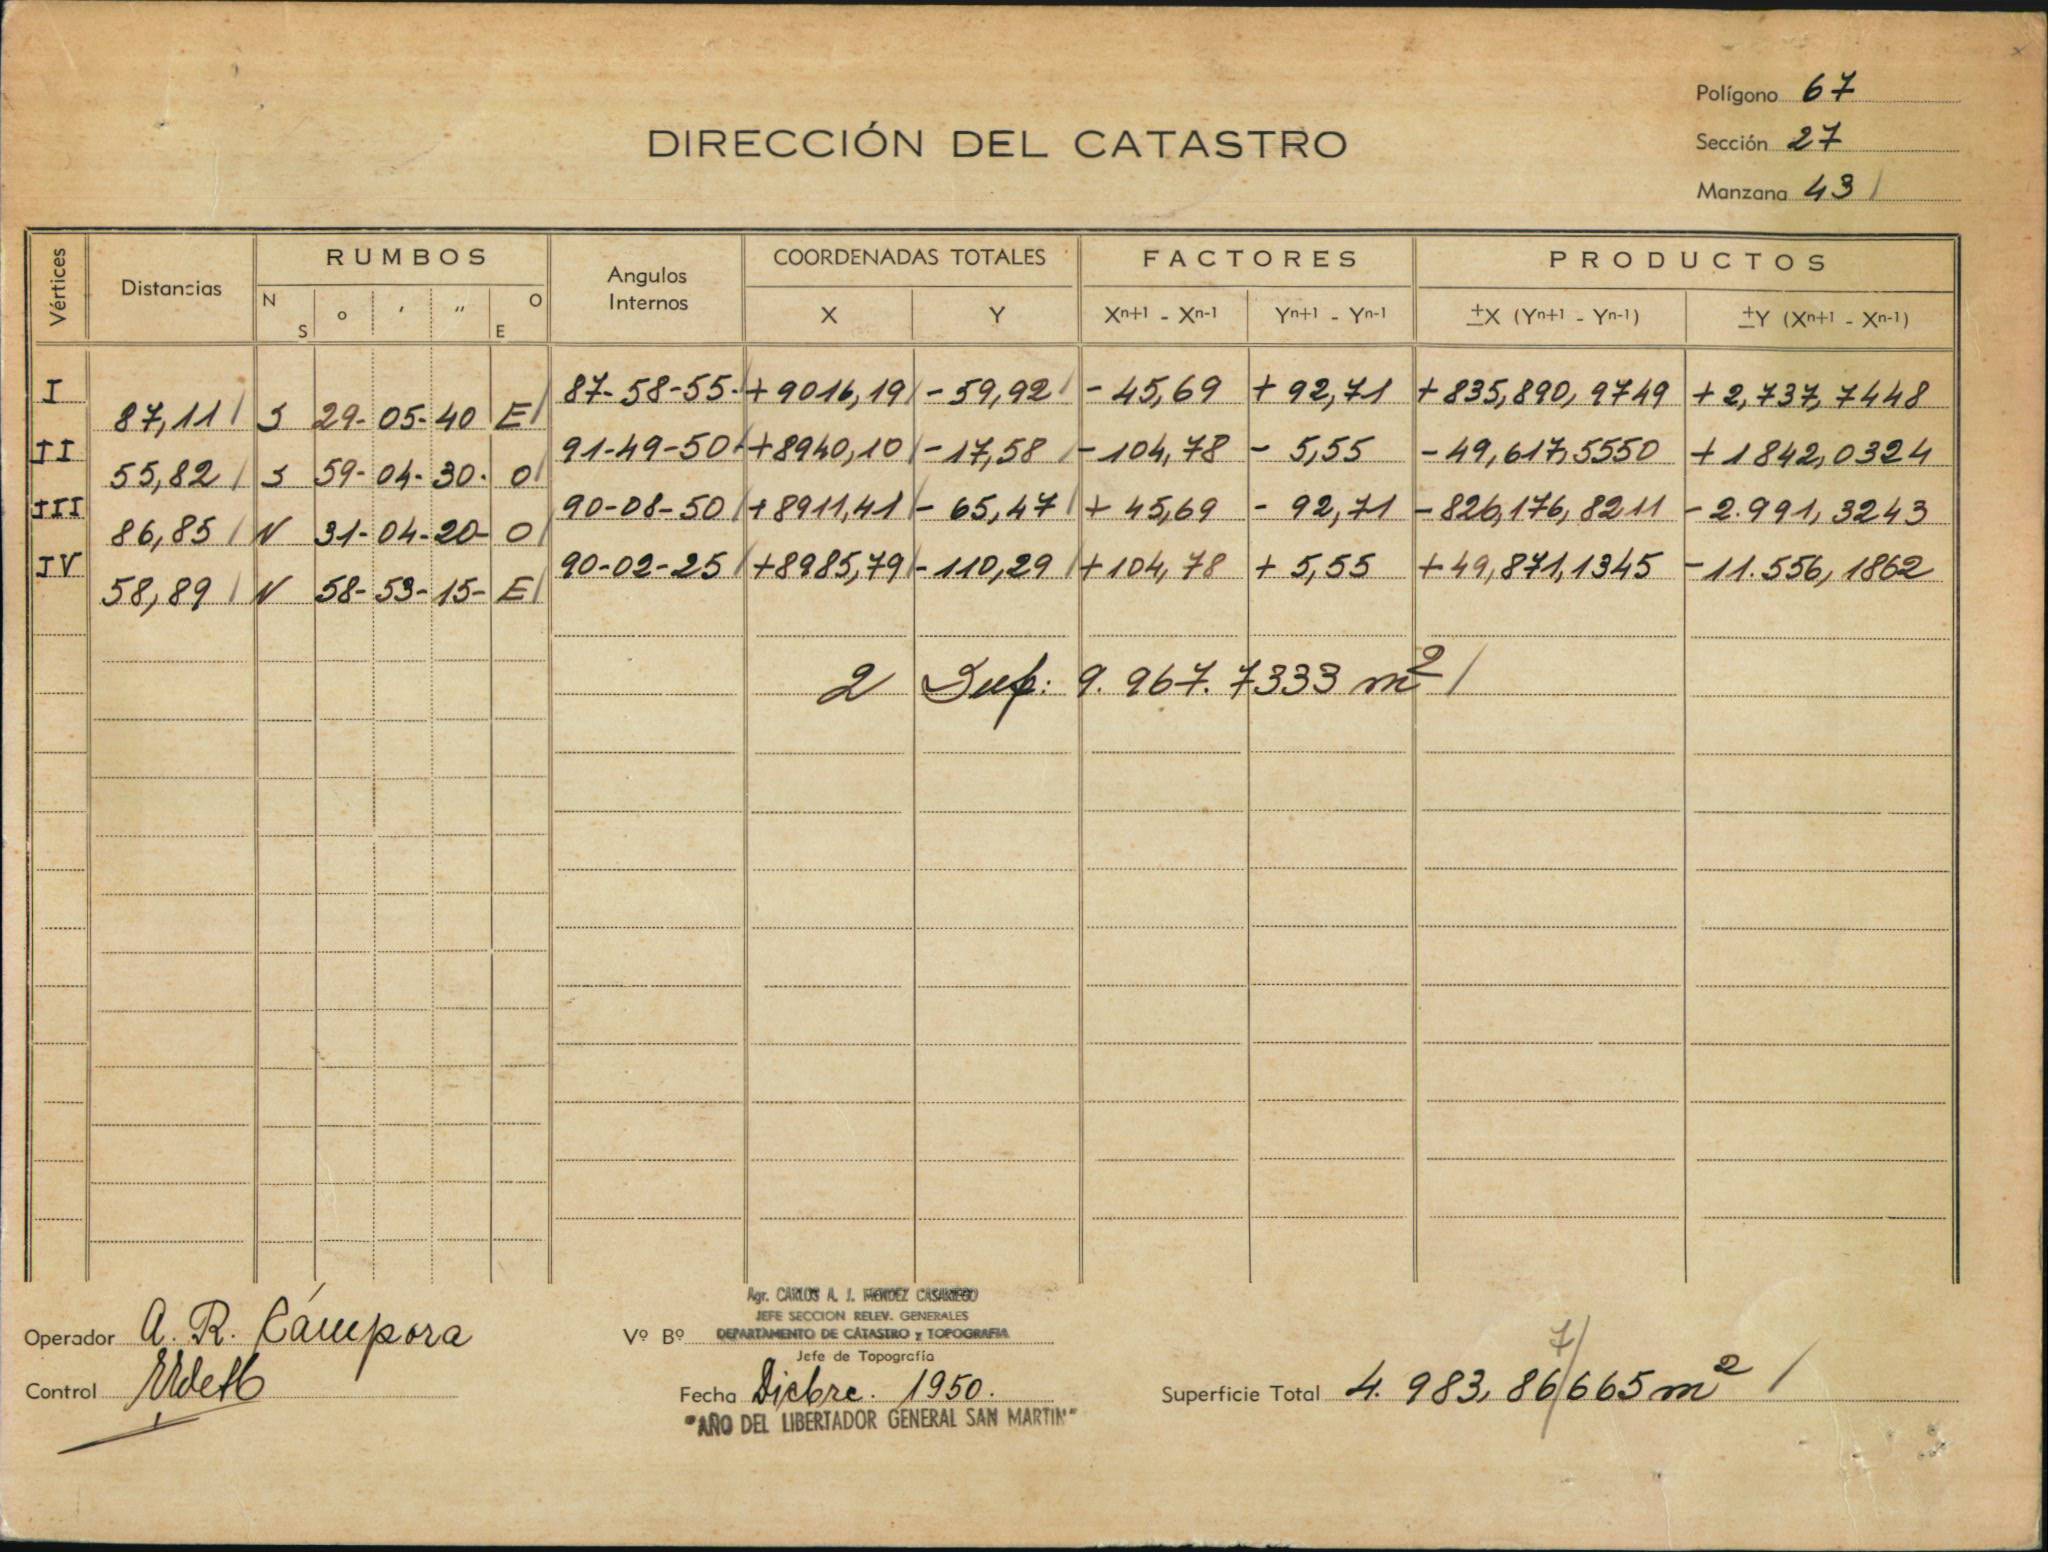 Polígono 67
DIRECCIÓN DEL CATASTRO
Sección 27
Manzana 43
Vértices Distancias RUMBOS Angulos Internos COORDENADAS TOTALES FACTORES PRODUCTOS
N S o ' " O E X Y Xn+1 - Xn-1 Yn+1 - Yn-1 ±X (Yn+1 - Yn-1) ±Y (Xn+1 - Xn-1)
I 87-58-55 +9016,19 -59,92 -45,69 +92,71 +835,890,9749 +2,737,7448
87,11 S 29-05-40 E
II 91-49-50 +8940,10 -17,58 -104,78 -5,55 -49,617,5550 +1842,0324
55,82 S 59-04-30 O
III 90-08-50 +8911,41 -65,47 +45,69 -92,71 -826,176,8211 -2.991,3243
86,85 N 31-04-20 O
IV 90-02-25 +8985,79 -110,29 +104,78 +5,55 +49,871,1345 -11.556,1862
58,89 N 58-53-15 E
2 Sup: 9.967.7333 m2
Agr. CARLOS A. J. MENDEZ CASARIEGO
JEFE SECCION RELEV. GENERALES
Operador A. R. Cámpora Vº Bº DEPARTAMENTO DE CATASTRO y TOPOGRAFIA
Jefe de Topografía
7
Control Fecha Dicbre. 1950. Superficie Total 4.983,86/665 m2
"AÑO DEL LIBERTADOR GENERAL SAN MARTIN"